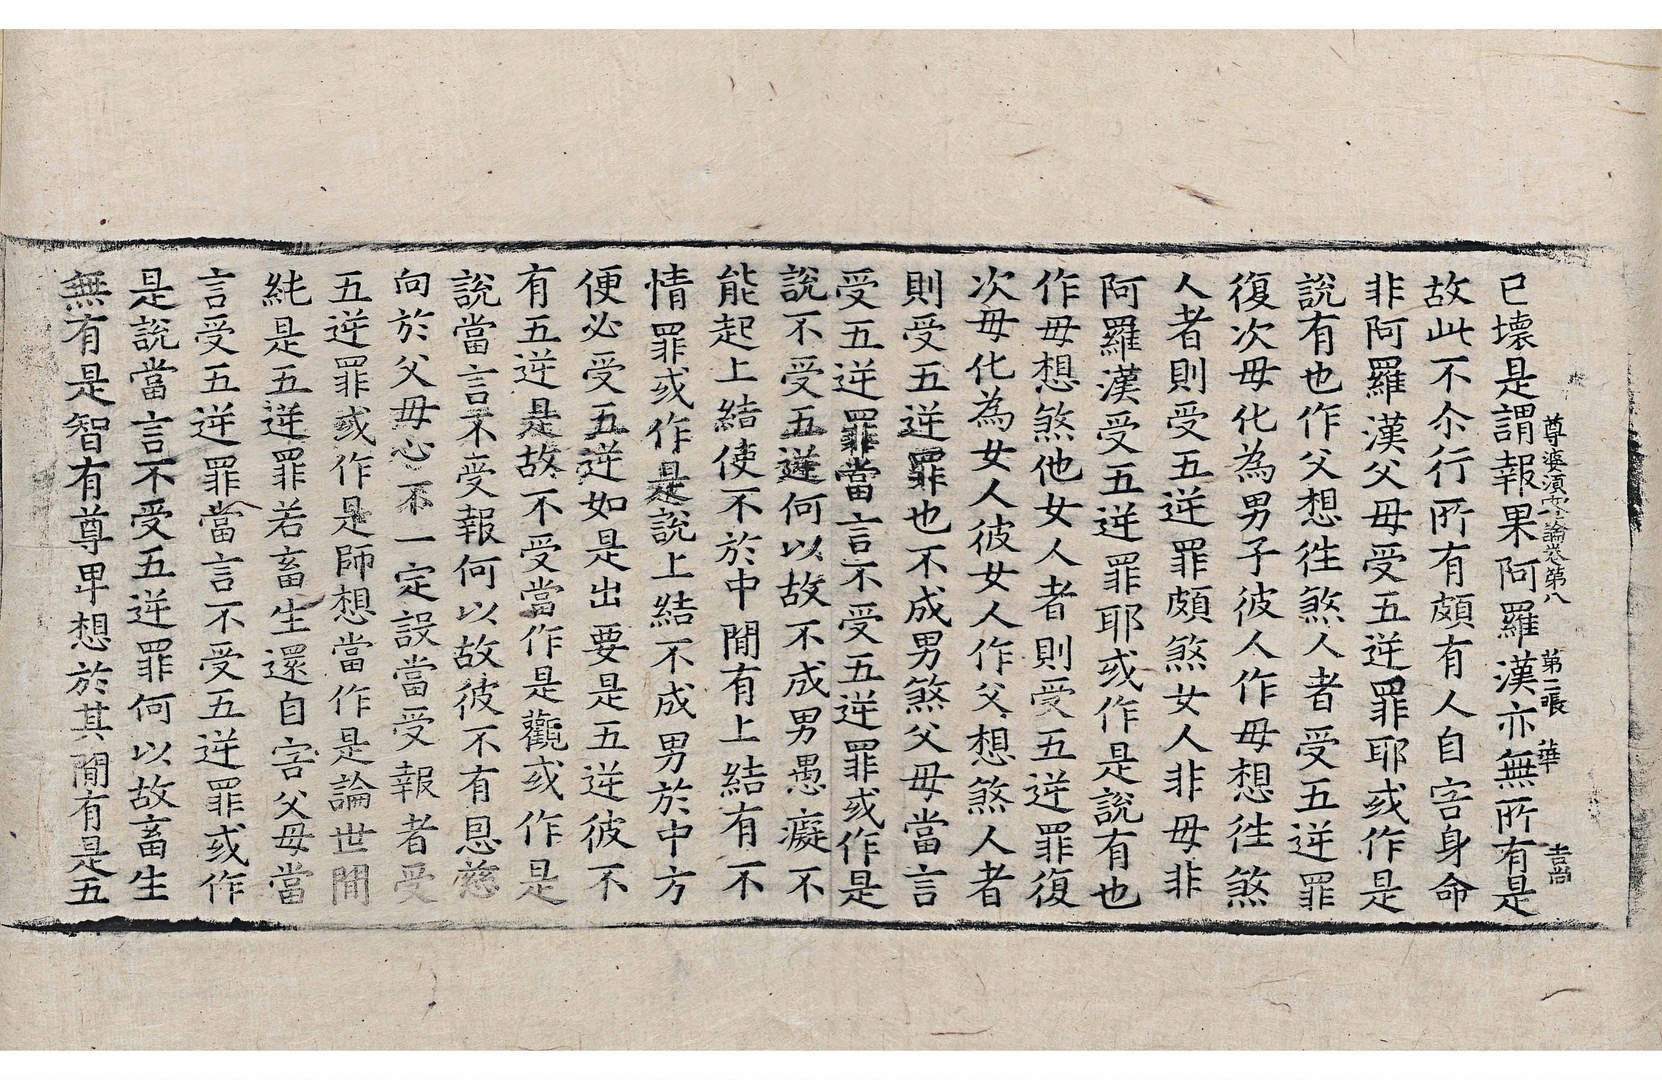 尊婆須蜜論卷第八　第二張　華　吉尚
已壞是謂報果阿羅漢亦無所有是
故此不尒行所有頗有人自害身命
非阿羅漢父母受五逆罪耶或作是
說有也作父想往煞人者受五逆罪
復次母化為男子彼人作母想往煞
人者則受五逆罪頗煞女人非母非
阿羅漢受五逆罪耶或作是說有也
作母想煞他女人者則受五逆罪復
次母化為女人彼女人作父想煞人者
則受五逆罪也不成男煞父母當言
受五逆罪當言不受五逆罪或作是
說不受五逆何以故不成男愚癡不
能起上結使不於中閒有上結有不
情罪或作是說上結不成男於中方
便必受五逆如是出要是五逆彼不
有五逆是故不受當作是觀或作是
說當言不受報何以故彼不有恩慈
向於父母心不一定設當受報者受
五逆罪或作是師想當作是論世閒
純是五逆罪若畜生還自害父母當
言受五逆罪當言不受五逆罪或作
是說當言不受五逆罪何以故畜生
無有是智有尊卑想於其閒有是五